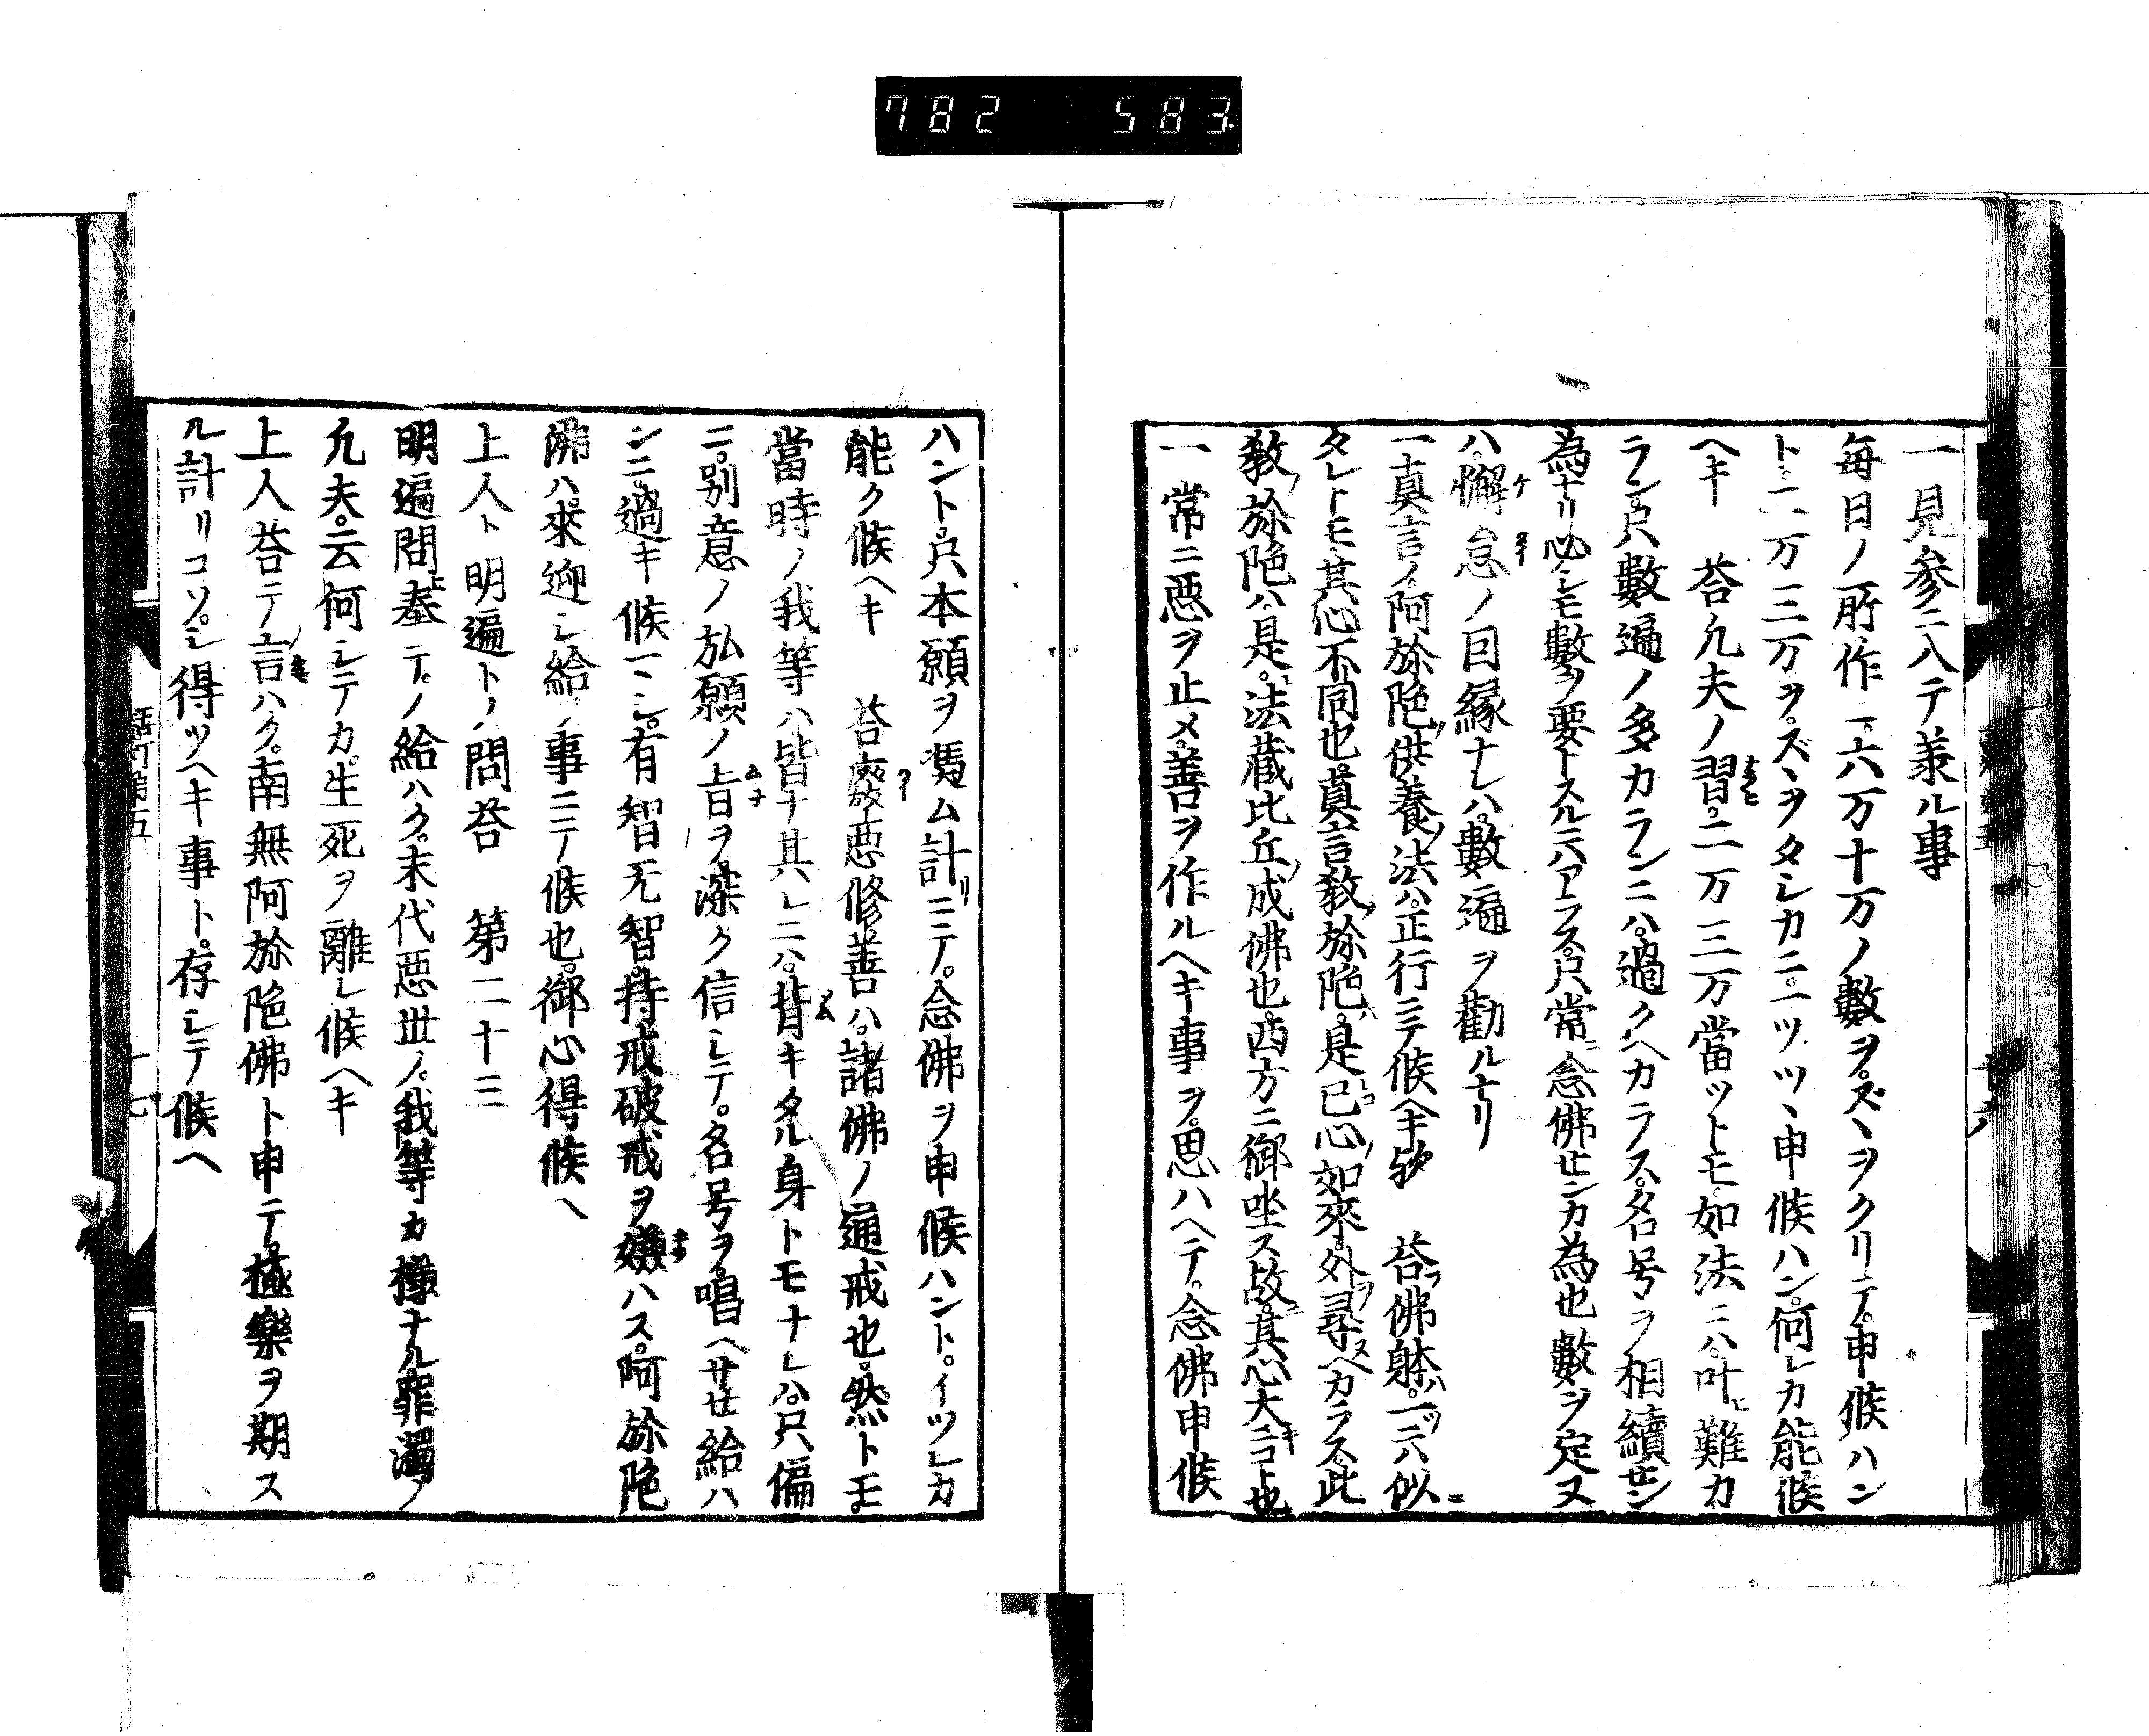 782 583
一見参ニ入テ兼ル事
毎日ノ所作ニ六万十万ノ數ヲ。ズヽヲクリテ。申候ハン
ト。二万三万ヲ。ズヽヲタシカニ。一ツツヽ申候ハン。何レカ能候
ヘキ　荅凢夫ノ習。二万三万當ツトモ。如法ニハ。叶ヒ難カ
ラン。只數遍ノ多カランニハ。過クヘカラス。名号ヲ相續センカ
為ナリ。必シモ數ヲ要トスルニハアラス。只常ニ念佛センカ為也數ヲ定ヌ
ハ。懈怠ノ因縁ナレハ。數遍ヲ勸ルナリ
一真言ノ阿弥陁ノ供養ノ法ハ。正行ニテ候ヘキ欤　荅フ佛躰ハ。一ツニハ似
タレトモ。其心不同也。真言教ノ弥陁ハ。是己心ノ如來。外ヲ尋ヌヘカラス。此
教ノ弥陁ハ。是。法蔵比丘ノ成佛也。西方ニ御坐ス故ニ。其心大ニコトキ也
一常ニ惡ヲ止メ。善ヲ作ルヘキ事ヲ。思ハヘテ。念佛申候
ハント。只本願ヲ憑ム計リニテ。念佛ヲ申候ハント。イツレカ
能ク候ヘキ　荅廢惡修善ハ。諸佛ノ通戒也。然トモ
當時ノ我等ハ皆ナ其レニハ。背キタル身トモナレハ。只偏
ニ。別意ノ弘願ノ旨ヲ。深ク信シテ。名号ヲ。唱ヘサセ給ハ
ンニ。過キ候マシ。有智无智。持戒破戒ヲ嫌ハス。阿弥陁
佛ハ。來迎シ給フ事ニテ候也。御心得候ヘ
上人ト明遍トノ問荅　第二十三
明遍問奉テノ給ハク。末代惡世ノ。我等カ様ナル罪濁ノ
凢夫。云何シテカ。生死ヲ離レ候ヘキ
上人荅テ言ハク。南無阿弥陁佛ト申テ。極樂ヲ期ス
ル計リコソ。シ得ツヘキ事ト。存シテ候ヘ